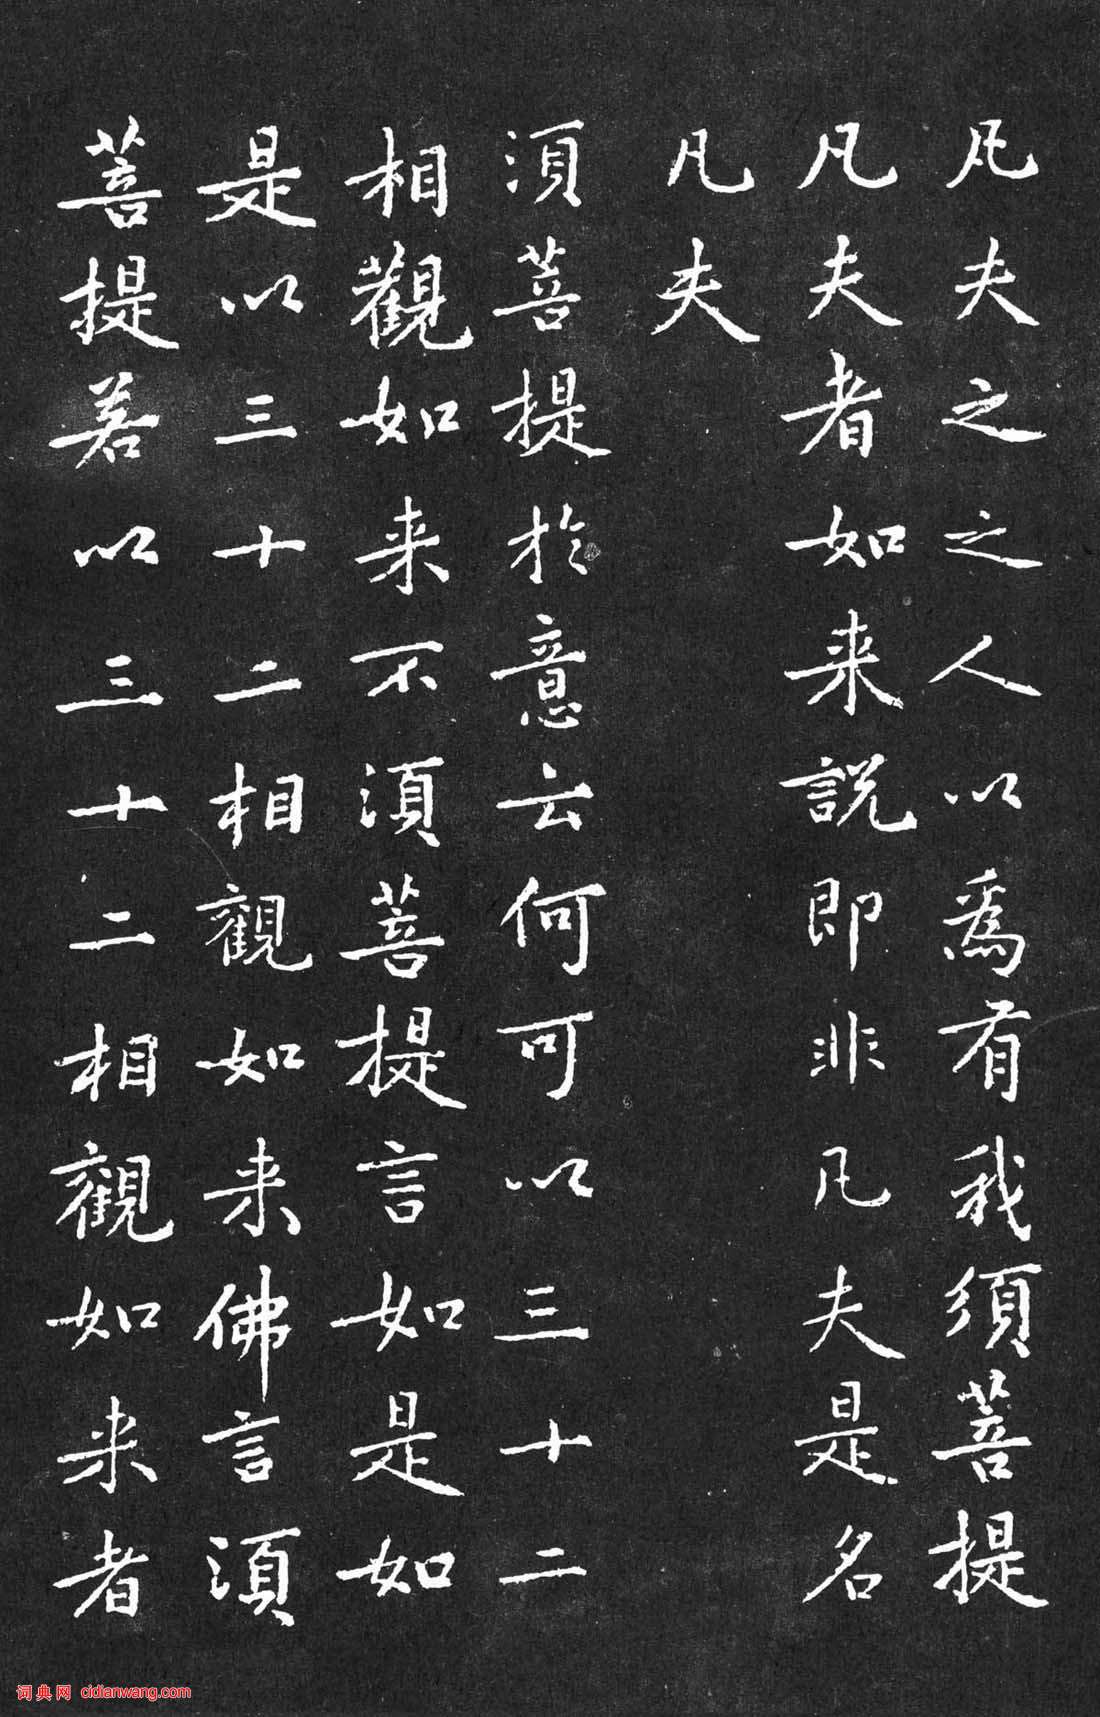 凡夫之之人以為有我須菩提
凡夫者如来說即非凡夫是名
凡夫
須菩提於意云何可以三十二
相觀如来不須菩提言如是如
是以三十二相觀如来佛言須
菩提若以三十二相觀如来者
词典网 cidianwang.com